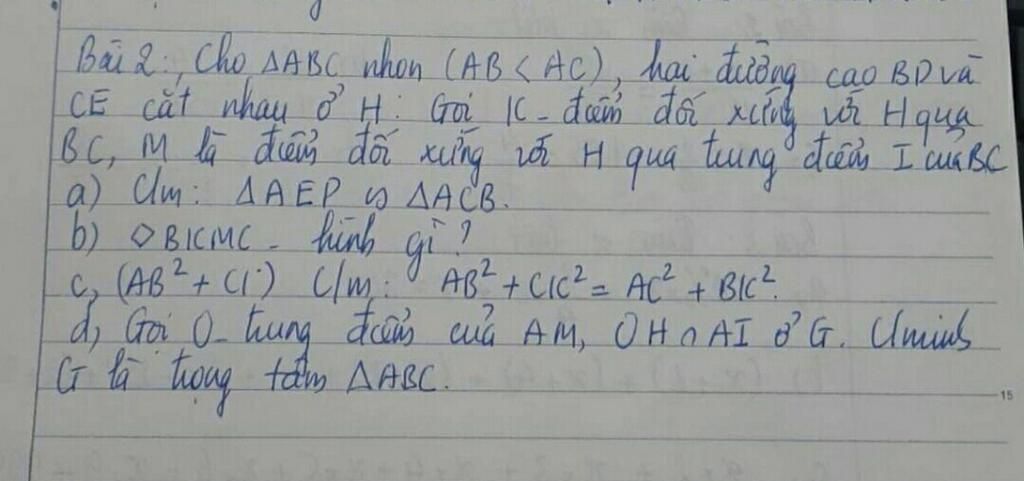 Bài 2:, Cho ΔABC nhọn (AB < AC), hai đường cao BD và
CE cắt nhau ở H. Gọi K - điểm đối xứng với H qua
BC, M là điểm đối xứng với H qua trung điểm I của BC
a) C/m: ΔAED ∽ ΔACB.
b) ◇BKMC - hình gì?
c, (AB² + CK) C/m: AB² + CK² = AC² + BK².
d, Gọi O - trung điểm của AM, OH ∩ AI ở G. C/minh
G là trọng tâm ΔABC.
15